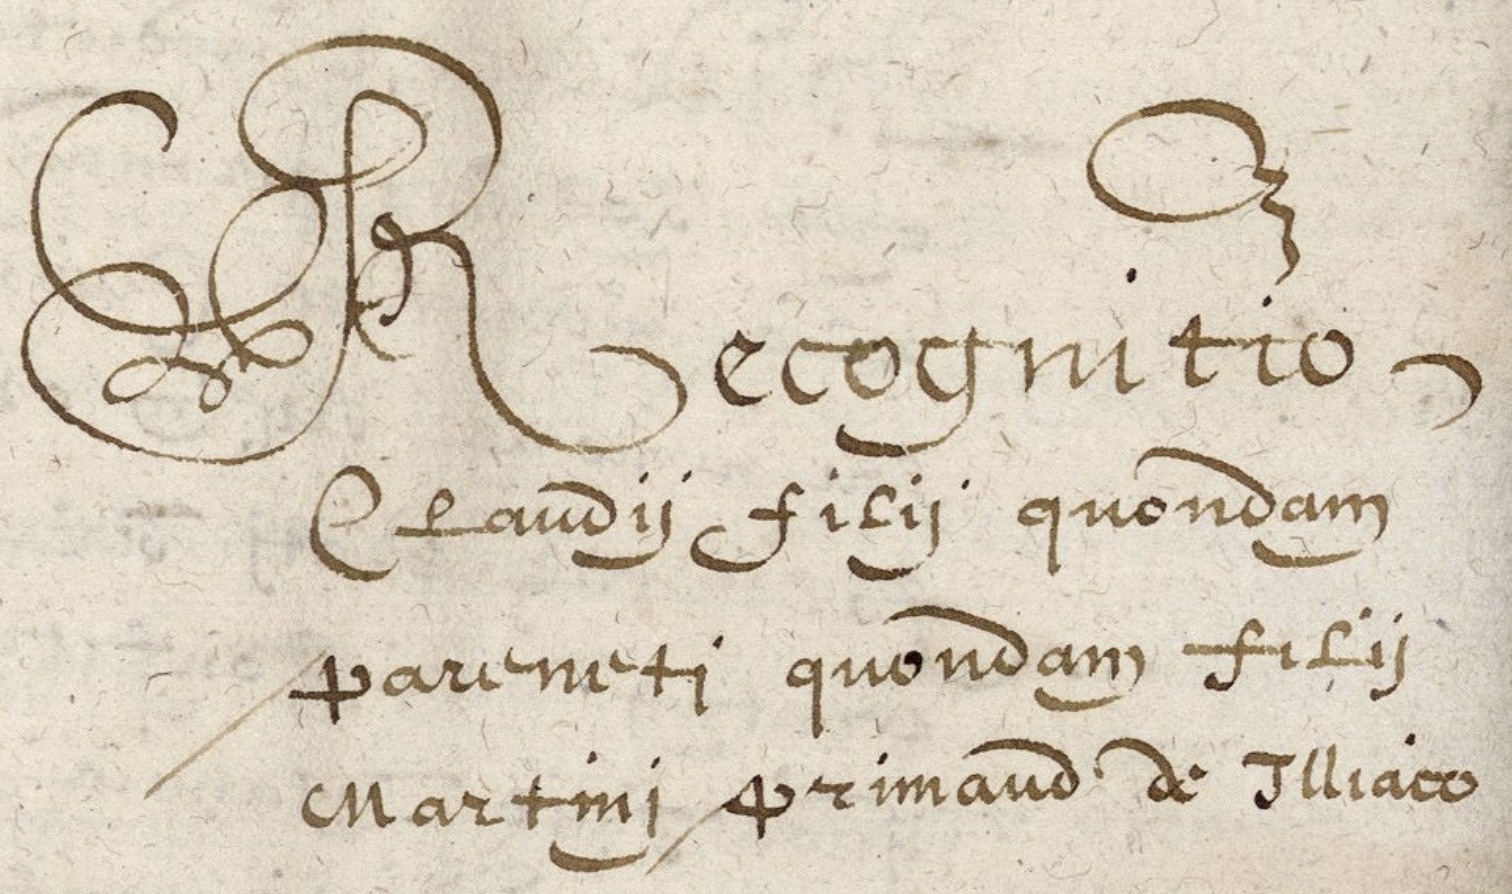 Recognitio
Claudij filij quondam
pareneti quondam filij
Martinj primaud de Illiaco